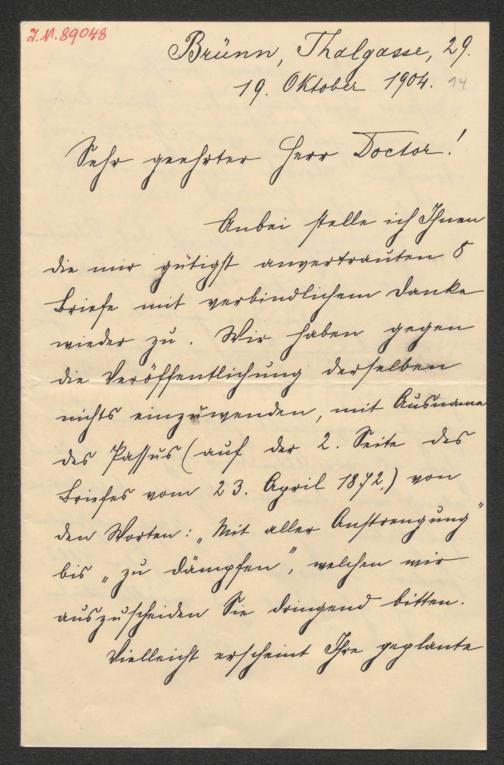 J.N. 89048
Brünn, Thalgasse, 29.
19. Oktober 1904.
Sehr geehrter Herr Doctor!
Anbei stelle ich Ihnen
die mir gütigst anvertrauten 8
Briefe mit verbindlichem Danke
wieder zu. Wir haben gegen
die Veröffentlichung derselben
nichts einzuwenden, mit Ausname
des Passus (auf der 2. Seite des
Briefes vom 23. April 1872.) von
den Worten: „Mit aller Anstrengung"
bis „zu dämpfen", welchen wir
auszuscheiden Sie dringend bitten.
Vielleicht erscheint Ihre geplante